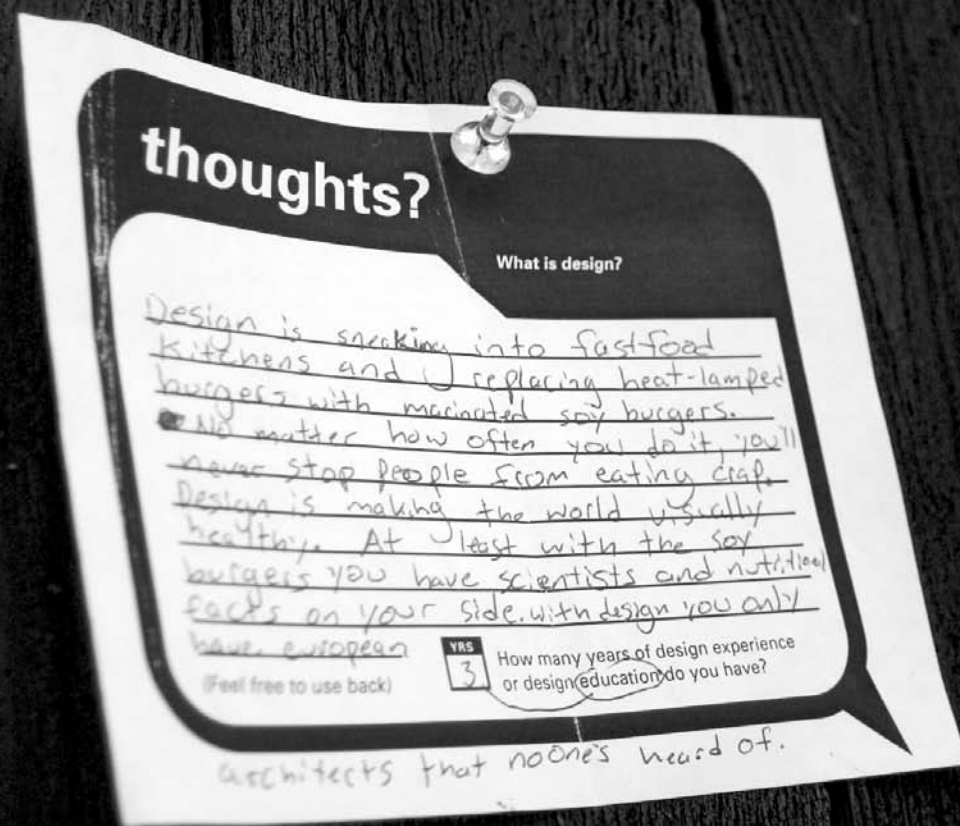 thoughts?
What is design?
Design is sneaking into fastfood
Kitchens and replacing heat-lamped
burgers with marinated soy burgers.
No matter how often you do it, you'll
never stop people from eating crap.
Design is making the world visually
healthy. At least with the soy
burgers you have scientists and nutritional
facts on your side. with design you only
have european
YRS
3
How many years of design experience
or design education do you have?
(Feel free to use back)
architects that noone's heard of.